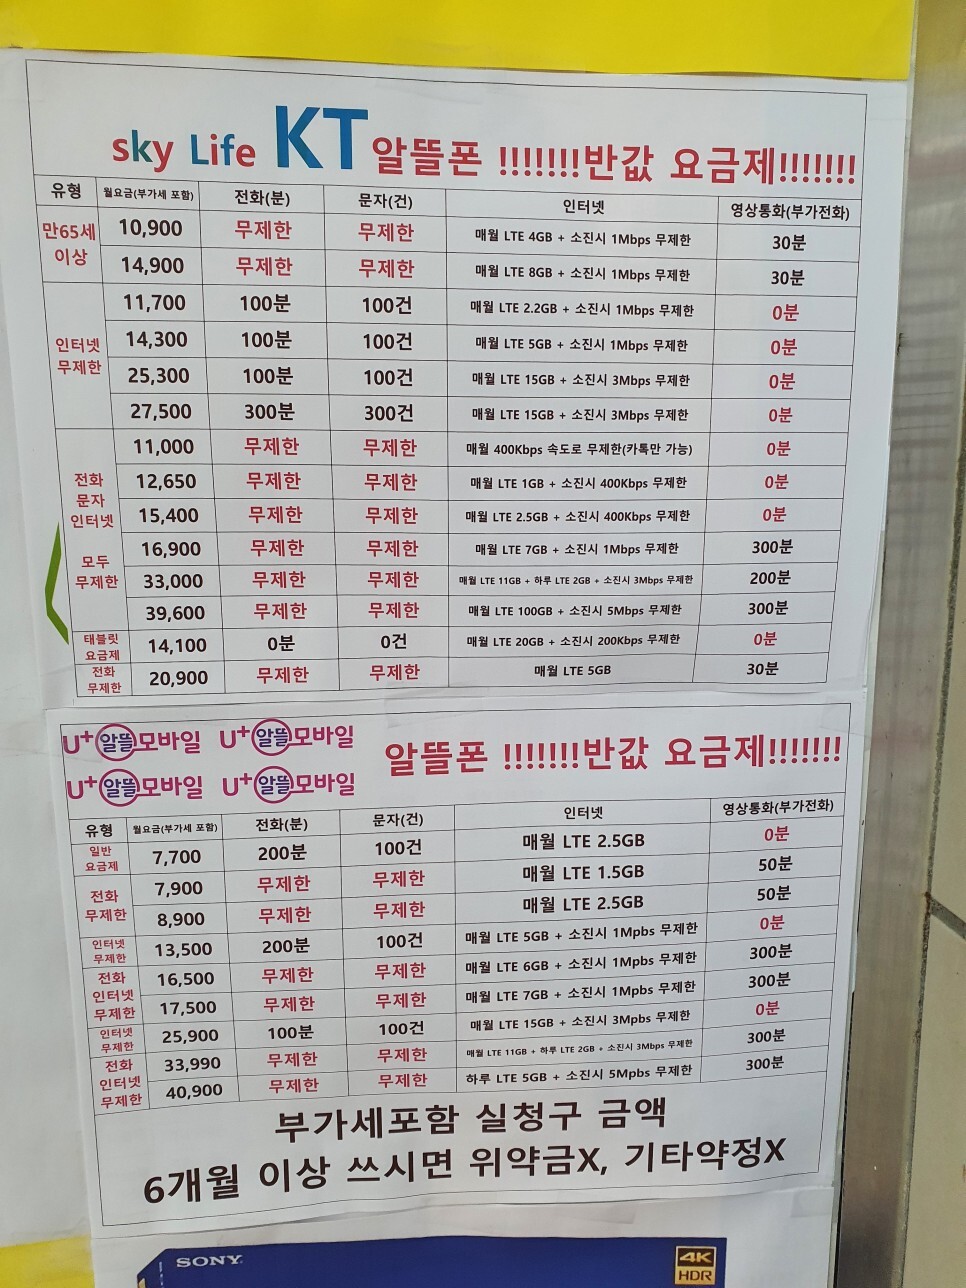 sky Life KT 알뜰폰 !!!!!!!반값 요금제!!!!!!!
유형 월요금(부가세 포함) 전화(분) 문자(건) 인터넷 영상통화(부가전화)
만65세 이상
10,900 무제한 무제한 매월 LTE 4GB + 소진시 1Mbps 무제한 30분
14,900 무제한 무제한 매월 LTE 8GB + 소진시 1Mbps 무제한 30분
인터넷 무제한
11,700 100분 100건 매월 LTE 2.2GB + 소진시 1Mbps 무제한 0분
14,300 100분 100건 매월 LTE 5GB + 소진시 1Mbps 무제한 0분
25,300 100분 100건 매월 LTE 15GB + 소진시 3Mbps 무제한 0분
27,500 300분 300건 매월 LTE 15GB + 소진시 3Mbps 무제한 0분
전화 문자 인터넷 모두 무제한
11,000 무제한 무제한 매월 400Kbps 속도로 무제한(카톡만 가능) 0분
12,650 무제한 무제한 매월 LTE 1GB + 소진시 400Kbps 무제한 0분
15,400 무제한 무제한 매월 LTE 2.5GB + 소진시 400Kbps 무제한 0분
16,900 무제한 무제한 매월 LTE 7GB + 소진시 1Mbps 무제한 300분
33,000 무제한 무제한 매월 LTE 11GB + 하루 LTE 2GB + 소진시 3Mbps 무제한 200분
39,600 무제한 무제한 매월 LTE 100GB + 소진시 5Mbps 무제한 300분
태블릿 요금제 14,100 0분 0건 매월 LTE 20GB + 소진시 200Kbps 무제한 0분
전화 무제한 20,900 무제한 무제한 매월 LTE 5GB 30분
U+알뜰모바일 U+알뜰모바일
U+알뜰모바일 U+알뜰모바일
알뜰폰 !!!!!!!반값 요금제!!!!!!!
유형 월요금(부가세 포함) 전화(분) 문자(건) 인터넷 영상통화(부가전화)
일반 요금제 7,700 200분 100건 매월 LTE 2.5GB 0분
전화 무제한
7,900 무제한 무제한 매월 LTE 1.5GB 50분
8,900 무제한 무제한 매월 LTE 2.5GB 50분
인터넷 무제한 13,500 200분 100건 매월 LTE 5GB + 소진시 1Mpbs 무제한 0분
전화 인터넷 무제한
16,500 무제한 무제한 매월 LTE 6GB + 소진시 1Mpbs 무제한 300분
17,500 무제한 무제한 매월 LTE 7GB + 소진시 1Mpbs 무제한 300분
인터넷 무제한 25,900 100분 100건 매월 LTE 15GB + 소진시 3Mpbs 무제한 0분
전화 인터넷 무제한
33,990 무제한 무제한 매월 LTE 11GB + 하루 LTE 2GB + 소진시 3Mbps 무제한 300분
40,900 무제한 무제한 하루 LTE 5GB + 소진시 5Mpbs 무제한 300분
부가세포함 실청구 금액
6개월 이상 쓰시면 위약금X, 기타약정X
SONY
4K
HDR